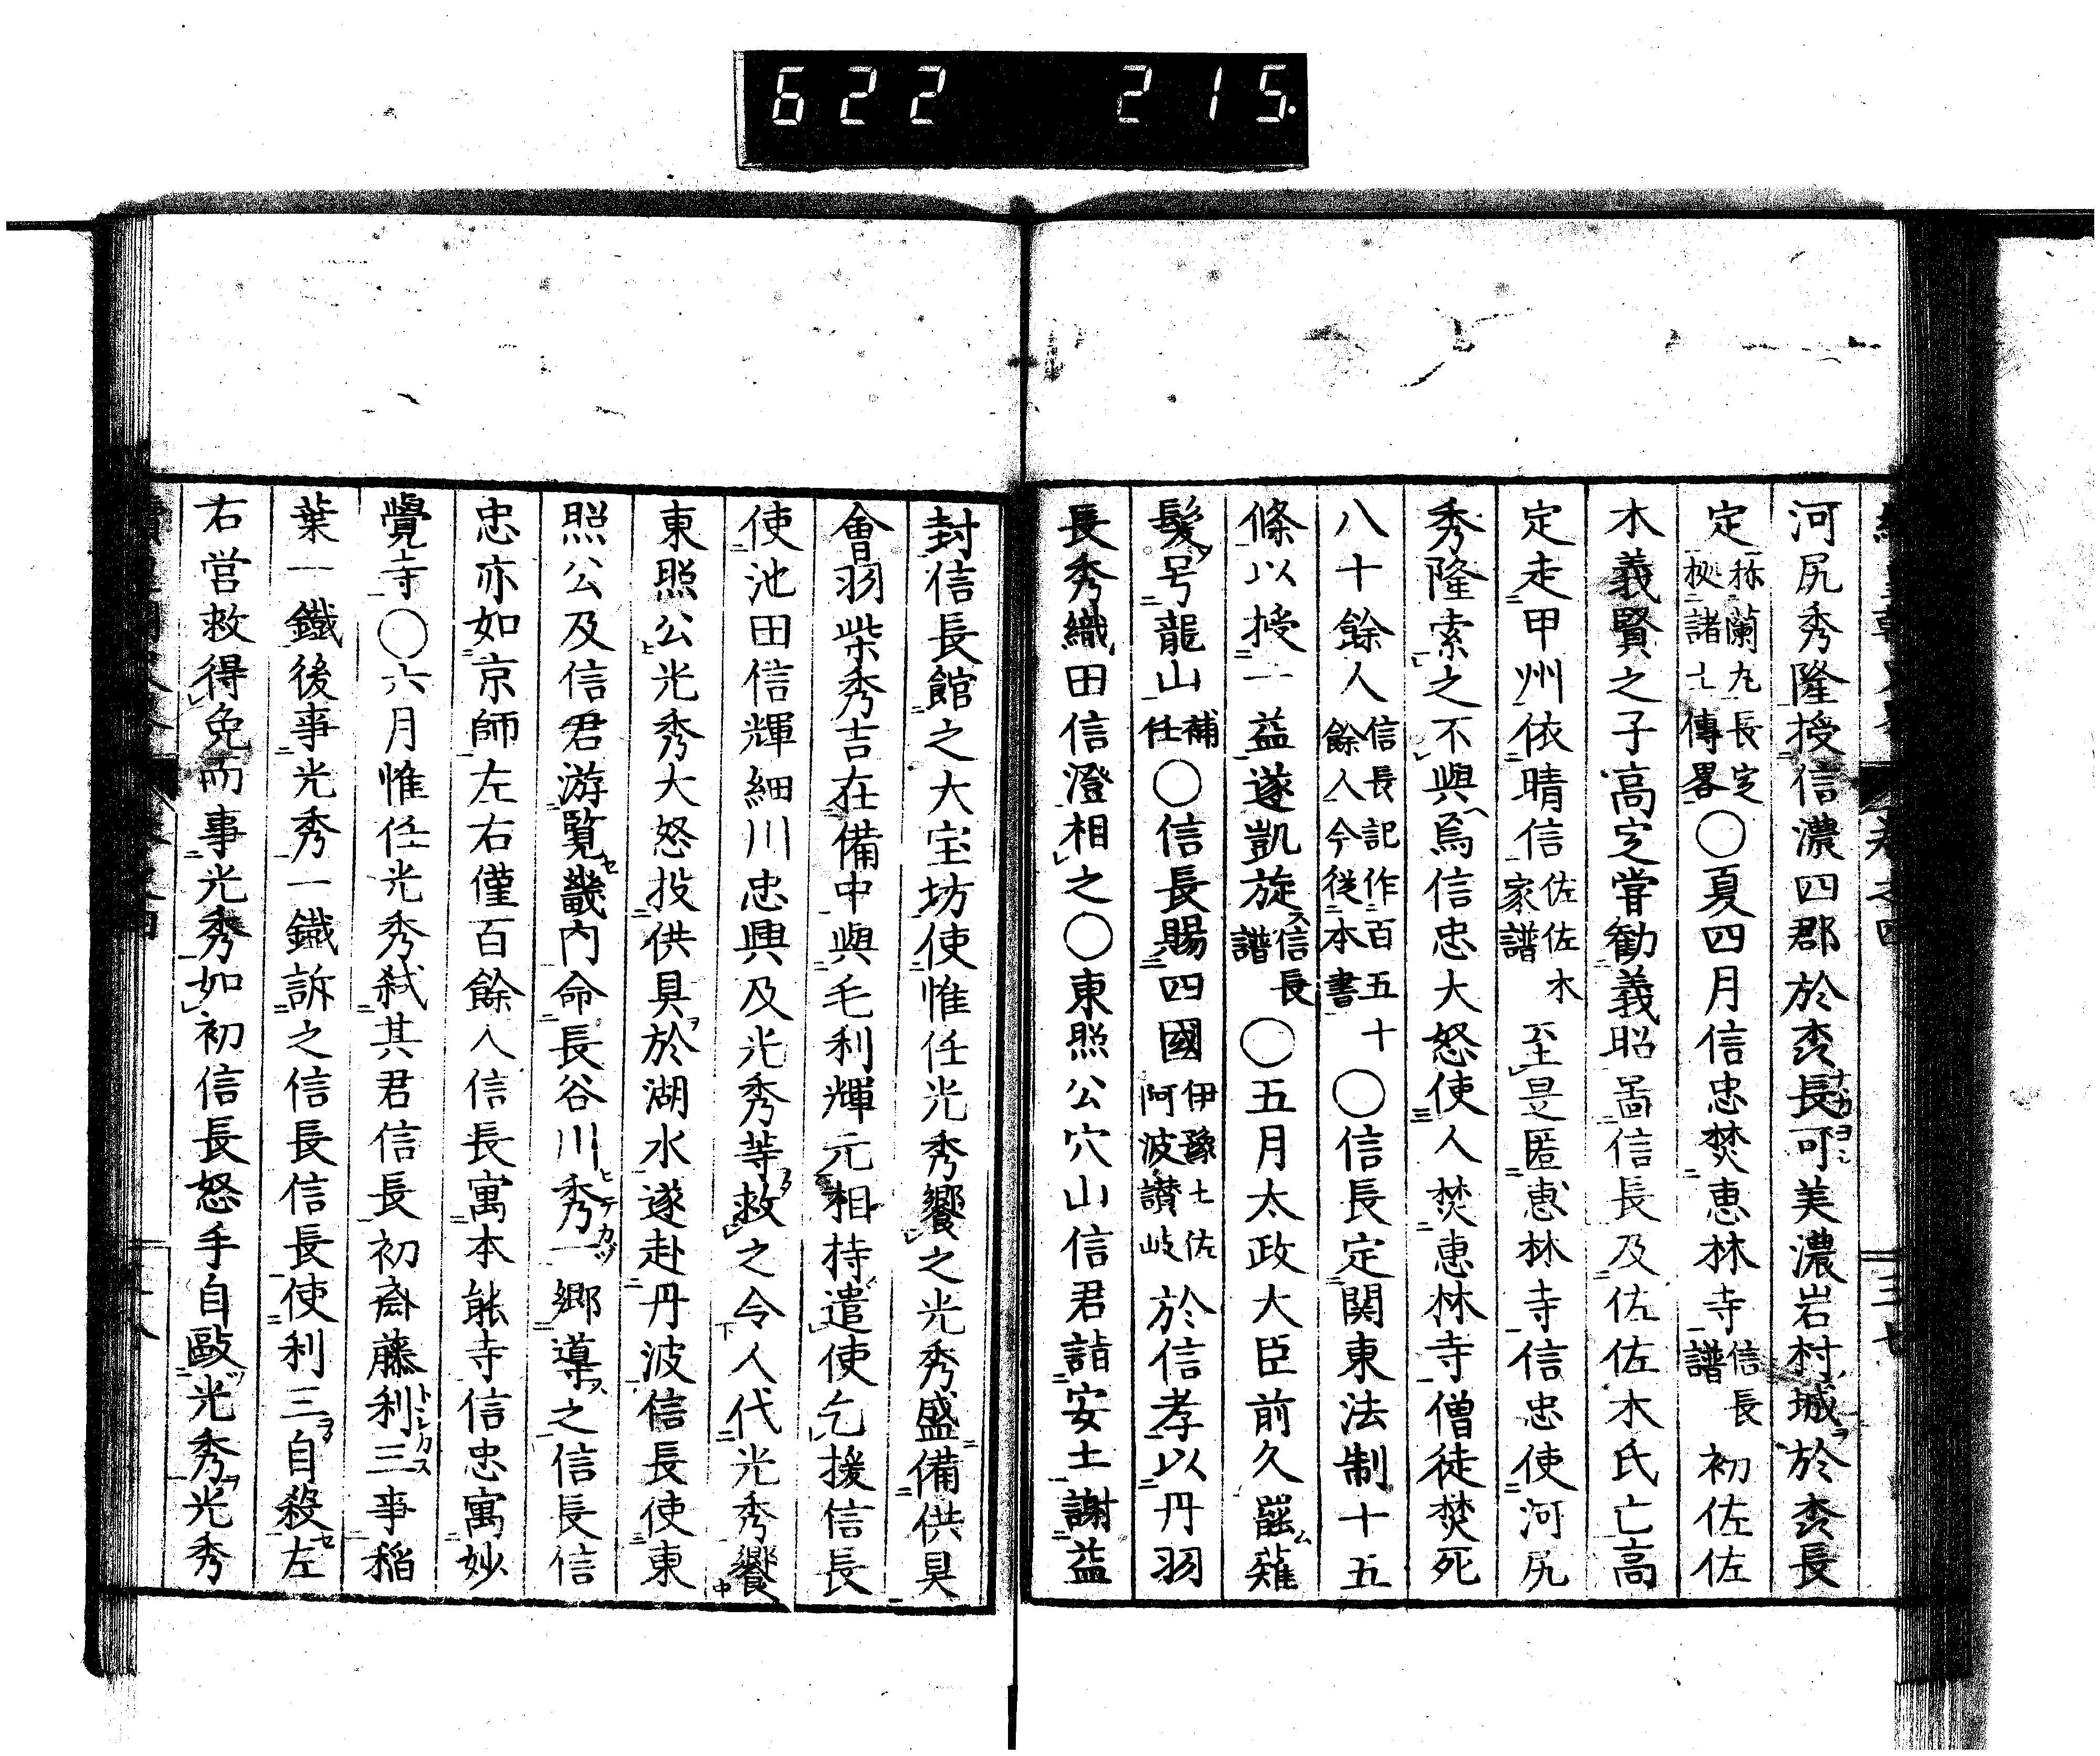 622 215.
河尻秀隆授信濃四郡於森長可美濃岩村城於森長
定 称蘭丸長定 拠諸士傳畧 ○夏四月信忠焚恵林寺 信長譜 初佐佐
木義賢之子高定嘗勧義昭啚信長及佐佐木氏亡高
定走甲州依晴信 佐佐木家譜 至是匿恵林寺信忠使河尻
秀隆索之不與焉信忠大怒使人焚恵林寺僧徒焚死
八十餘人 信長記作百五十餘人今従本書 ○信長定関東法制十五
條以授一益遂凱旋 信長譜 ○五月太政大臣前久罷薙
髪号龍山 補任 ○信長賜四國 伊豫土佐阿波讃岐 於信孝以丹羽
長秀織田信澄相之○東照公穴山信君詣安土謝益
封信長館之大宝坊使惟任光秀饗之光秀盛備供具
會羽柴秀吉在備中與毛利輝元相持遣使乞援信長
使池田信輝細川忠興及光秀等救之令人代光秀饗
東照公光秀大怒投供具於湖水遂赴丹波信長使東
照公及信君游覧畿内命長谷川秀一郷導之信長信
忠亦如京師左右僅百餘人信長寓本能寺信忠寓妙
覺寺○六月惟任光秀弑其君信長初斎藤利三事稲
葉一鐵後事光秀一鐵訴之信長信長使利三自殺左
右営救得免而事光秀如初信長怒手自毆光秀光秀